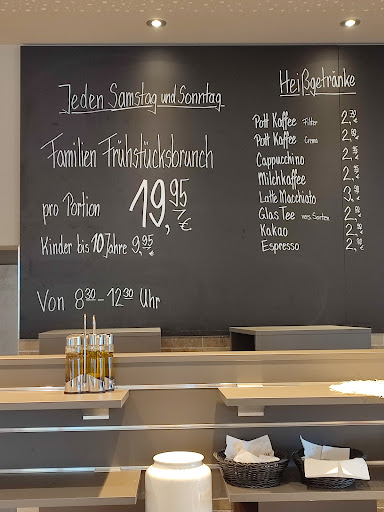 Jeden Samstag und Sonntag
Familien Frühstücksbrunch
pro Portion 19,95 €
Kinder bis 10 Jahre 9,95 €
Von 8³⁰ - 12³⁰ Uhr
Heißgetränke
Pott Kaffee Filter 2,
Pott Kaffee Crema 2,
Cappuccino 2,
Milchkaffee 2,
Latte Macchiato
Glas Tee vers. Sorten 2,
Kakao 2,
Espresso 2,